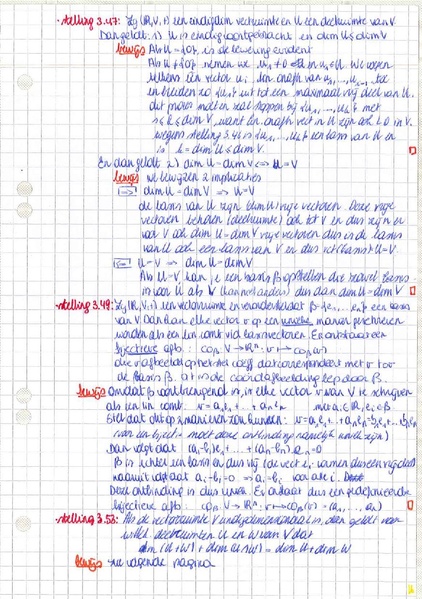 • stelling 3.47: Zij (ℝ,V,+) een eindigdim vectorruimte en U een deelruimte van V.
Dan geldt: 1) U is eindig voortgebracht en dim U ≤ dim V
bewijs Als U = {0}, is de bewering evident
Als U ≠ {0} nemen we u₁ ≠ 0 en u₁ ∈ U. We voegen
telkens een vector uᵢ lin. onafh van u₁, ..., uᵢ₋₁ toe
en breiden zo {u₁} uit tot een maximaal vrij deel van U.
dit proces moet en zal stoppen bij {u₁, ..., uₖ} met
k ≤ dim V, want lin. onafh vect in U zijn ook LO in V.
wegens stelling 3.41 is {u₁, ..., uₖ} een basis van U en
is k = dim U ≤ dim V.
En dan geldt 2) dim U = dim V <=> U = V
bewijs we bewijzen 2 implicaties
=> dim U = dim V => U = V
de basis van U zijn dim U vrije vectoren. Deze vrije
vectoren behoren (deelruimte) ook tot V en dus zijn er
voor V ook dim U = dim V vrije vectoren dus is de basis
van U ook een basis van V en dus is U = V.
<= U = V => dim U = dim V
Als U = V kan je een basis β opstellen die zowel basis
is voor U als V (kan niet anders) dus dan dim U = dim V
• stelling 3.49: Zij (ℝ,V,+) een vectorruimte en veronderstel dat β = {e₁, ..., eₙ} een basis
van V. Dan kan elke vector v op een unieke manier geschreven
worden als een lin comb vd basisvectoren. Er ontstaat een
bijectieve afb.: co_β: V → ℝⁿ: v ↦ co_β(v)
die v afbeeldt op het stel coëff dat correspondeert met v tov
de basis β. dit is de coördinaatafbeelding bepaald door β.
bewijs Omdat β voortbrengend is, is elke vector v van V te schrijven
als een lin comb. v = a₁e₁ + ... + aₙeₙ met aᵢ ∈ ℝ, eᵢ ∈ β
Stel dat dit op 2 manieren zou kunnen: v = a₁e₁ + ... + aₙeₙ = b₁e₁ + ... + bₙeₙ
(voor een bijectie moet deze ontbinding namelijk uniek zijn)
Dan volgt dat (a₁-b₁)e₁ + ... + (aₙ-bₙ)eₙ = 0
β is echter een basis en dus vrij (de vect eᵢ vormen dus een vrij deel)
waaruit volgt dat aᵢ - bᵢ = 0 => aᵢ = bᵢ voor alle i.
Deze ontbinding is dus uniek. Er ontstaat dus een goed gedefinieerde
bijectieve afb.: co_β: V → ℝⁿ: v ↦ co_β(v) = (a₁, ..., aₙ)
• stelling 3.53: Als de vectorruimte V eindigdimensionaal is, dan geldt voor
willek. deelruimten U en W van V dat
dim (U+W) + dim (U∩W) = dim U + dim W
bewijs zie volgende pagina